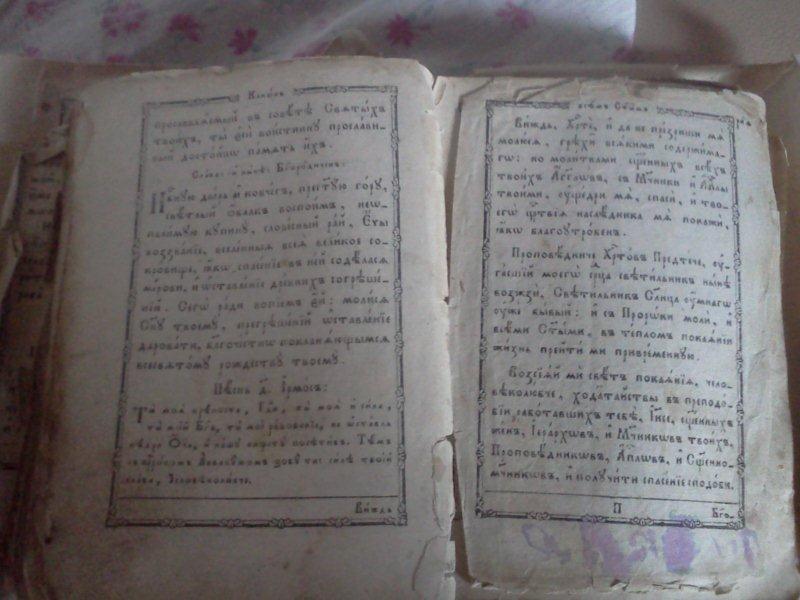 Канѡнъ
прославлѧемый въ совѣтѣ Свѧты́хъ
твои́хъ, ты є҆сѝ вои́стинну прослави-
вый досто́йнѡ па́мѧть и҆́хъ.
Сла́ва: и҆ ны́нѣ: Бг҃оро́диченъ:
Нбⷭ҇ную две́рь и҆ ковче́гъ, прест҃у́ю го́ру,
свѣ́тлый ѡ҆́блакъ воспои́мъ, неѡ-
пали́мую купинꙋ̀, слове́сный ра́й, Є҆́ѵы
воззва́нїе, вселе́нныѧ всеѧ̀ вели́кое со-
кро́вище, ꙗ҆́кѡ спасе́нїе въ не́й содѣ́ласѧ
мі́рови, и҆ ѡ҆ставле́нїе дре́внихъ согрѣше́-
нїй. Сегѡ̀ ра́ди вопїе́мъ є҆́й: моли́сѧ
Сн҃ꙋ твоемꙋ̀, прегрѣше́нїй ѡ҆ставле́нїе
дарова́ти, бл҃гоче́стнѡ покланѧ́ющымсѧ
всесвѧто́мꙋ рождествꙋ̀ твоемꙋ̀.
Пѣ́снь д҃. І҆рмо́съ:
Ты̀ моѧ̀ крѣ́пость, Гдⷭ҇и, ты̀ моѧ̀ и҆ си́ла,
ты̀ мо́й Бг҃ъ, ты̀ моѐ ра́дованїе, не ѡ҆ста́вль
нѣ́дра Ѻ҆́ч҃а, и҆ на́шꙋ нищетꙋ̀ посѣти́въ. Тѣ́мъ
съ прⷪ҇ро́комъ А҆ввакꙋ́момъ зовꙋ́ ти: си́лѣ твое́й
сла́ва, Чл҃вѣколю́бче.
Ви́ждь
всѣ́мъ Ст҃ы́мъ
Ви́ждь, Хрⷭ҇тѐ, и҆ да не пре́зриши мѧ̀
молю́сѧ, грѣхѝ всѧ́кими содержи́ма-
го: но моли́твами сщ҃е́нныхъ всѣ́хъ
твои́хъ А҆́гг҃лѡвъ, съ Мч҃ники и҆ А҆пⷭ҇лы
твои́ми, ᲂу҆ще́дри мѧ̀, спасѝ, и҆ тво-
егѡ̀ црⷭ҇твїѧ наслѣ́дника мѧ̀ покажѝ,
ꙗ҆́кѡ благоутро́бенъ.
Проповѣ́дниче Хрⷭ҇то́въ Предте́че, ᲂу҆-
га́сшїй моегѡ̀ се́рдца свѣти́льникъ ны́нѣ
возжзѝ, Свѣти́льникъ Сл҃нца ᲂу҆́мнагѡ
ᲂу҆́же бы́вый: и҆ съ Прⷪ҇ро́ки молѝ, и҆
всѣ́ми Ст҃ы́ми, въ те́пломъ покаѧ́нїи
жи́знь прейти́ ми привре́менную.
Возсїѧ́й мѝ свѣ́тъ покаѧ́нїѧ, чело-
вѣколю́бче, хода́тайствы въ преподо́-
бїи рабо́тавшихъ тебѣ̀, І҆и҃се, сщ҃е́нныхъ
же́нъ, І҆ера́рхѡвъ, и҆ Мч҃никѡвъ твои́хъ,
Проповѣ́дникѡвъ, А҆пⷭ҇лѡвъ, и҆ Сщ҃енно-
мч҃никѡвъ, и҆ получи́ти спасе́нїе сподо́би.
П
Бг҃о-